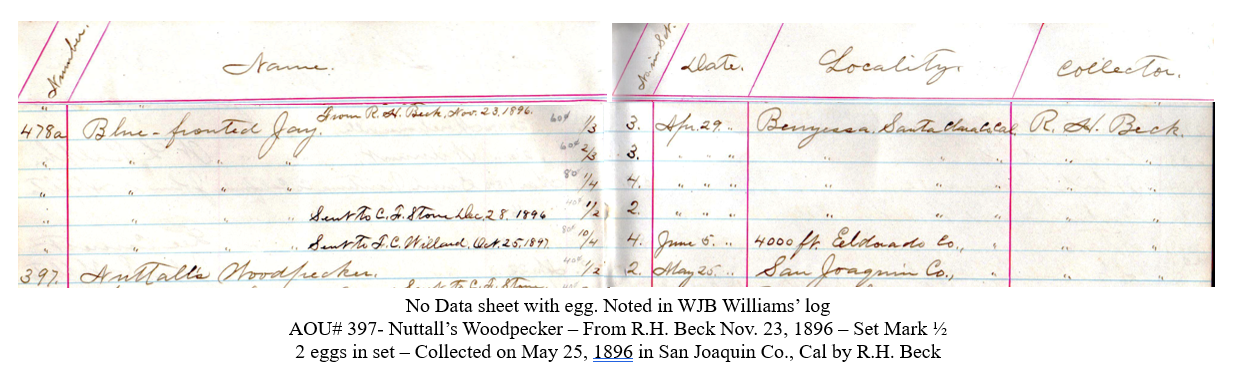 Number. Name. No. in Set. Date. Locality. Collector.
" " From R. H. Beck, Nov. 23, 1896.
478a Blue-fronted Jay. 60¢ 1/3 3. Apr. 29. " Berryessa, Santa Clara Co. Cal R. H. Beck.
" 60¢ 2/3 3. " " " " " " " "
" " " " 80 1/4 4. " " " " " " " "
" " " " Sent to C. F. Stone Dec. 28, 1896 40¢ 1/2 2. " " " " " " " "
" " " " Sent to F. C. Willard, Oct. 25, 1897 80¢ 10/4 4. June 5. " 4000 ft. Eldorado Co., " " "
397. Nuttall's Woodpecker. 40¢ 1/2 2. May 25. " San Joaquin Co., " " "
Sent to C. F. Stone
No Data sheet with egg. Noted in WJB Williams’ log
AOU# 397- Nuttall’s Woodpecker – From R.H. Beck Nov. 23, 1896 – Set Mark ½
2 eggs in set – Collected on May 25, 1896 in San Joaquin Co., Cal by R.H. Beck